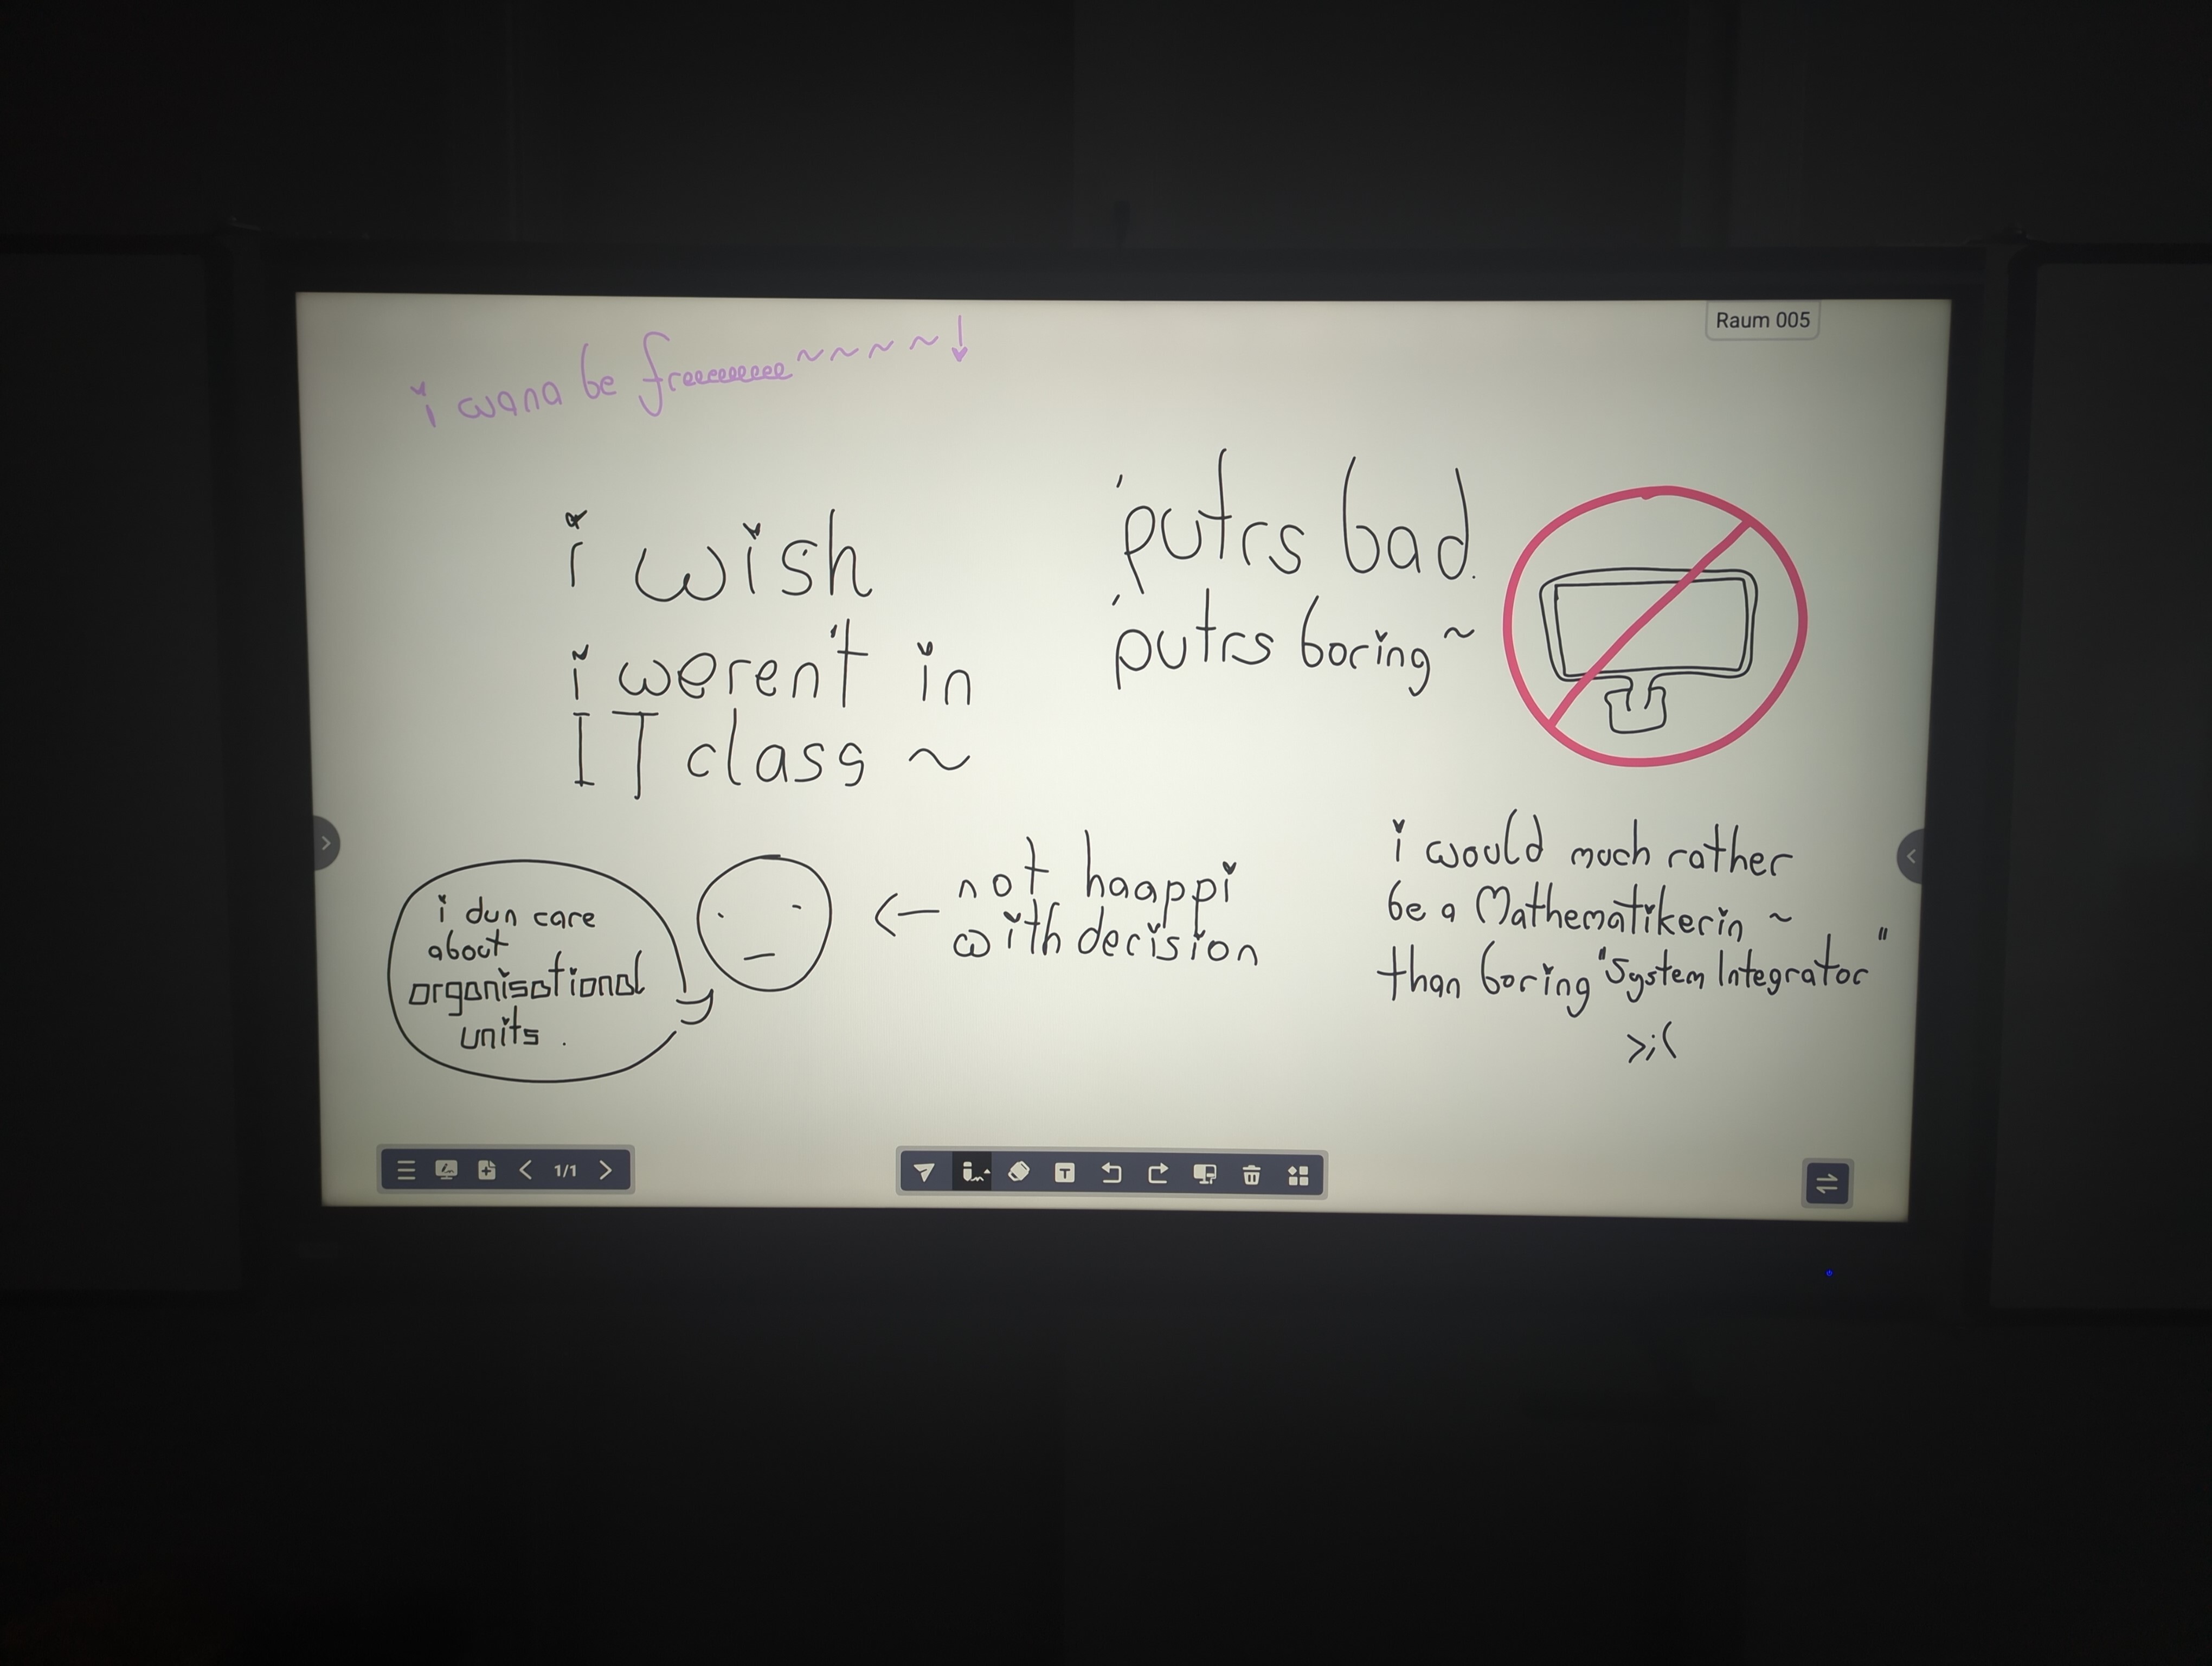 Raum 005
i wana be freeeeeeeee~~~~~!
i wish
i weren't in
IT class ~
'putrs bad.
'putrs boring~
i dun care
about
organisational
units.
← not haappi
with decision
i would much rather
be a Mathematikerin ~
than boring "System Integrator"
>;(
1/1